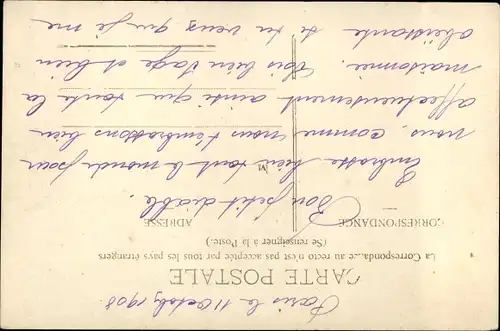 Paris le 11 Octobre 1908
CARTE POSTALE
La Corresponda..ce au recto n'est pas acceptée par tous les pays étrangers
(Se renseigner à la Poste.)
CORRESPONDANCE
ADRESSE
Bon petit diable.
Embrasse bien tout le monde pour
nous, comme nous t'embrassons bien
affectueusement ainsi que toute la
maisonnée. Sois bien sage et bien
obéissante si tu veux que je me
M